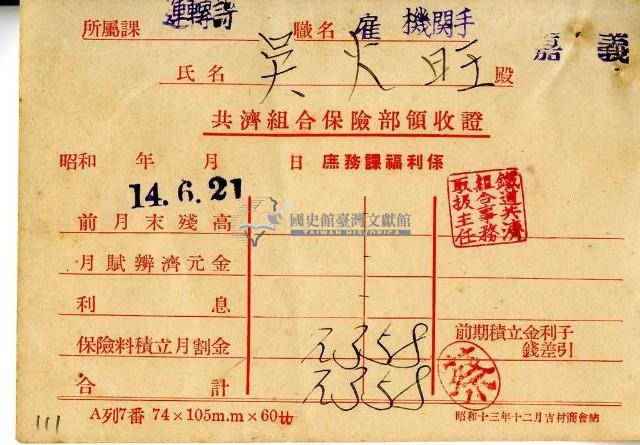 所屬課 運轉詩 職名 雇 機関手
嘉義
氏名 吳火旺 殿
共濟組合保險部領收證
昭和 年 月 日 庶務課福利係
14.6.21
鐵道共濟
組合事務
取扱主任
前月末殘高
國史館臺灣文獻館
TAIWAN HISTORICA
月賦辨濟元金
利息
保險料積立月割金 2358
前期積立金利子
錢差引
合計 2358
A列7番 74×105m.m×60
昭和十三年十二月吉村商會納
111